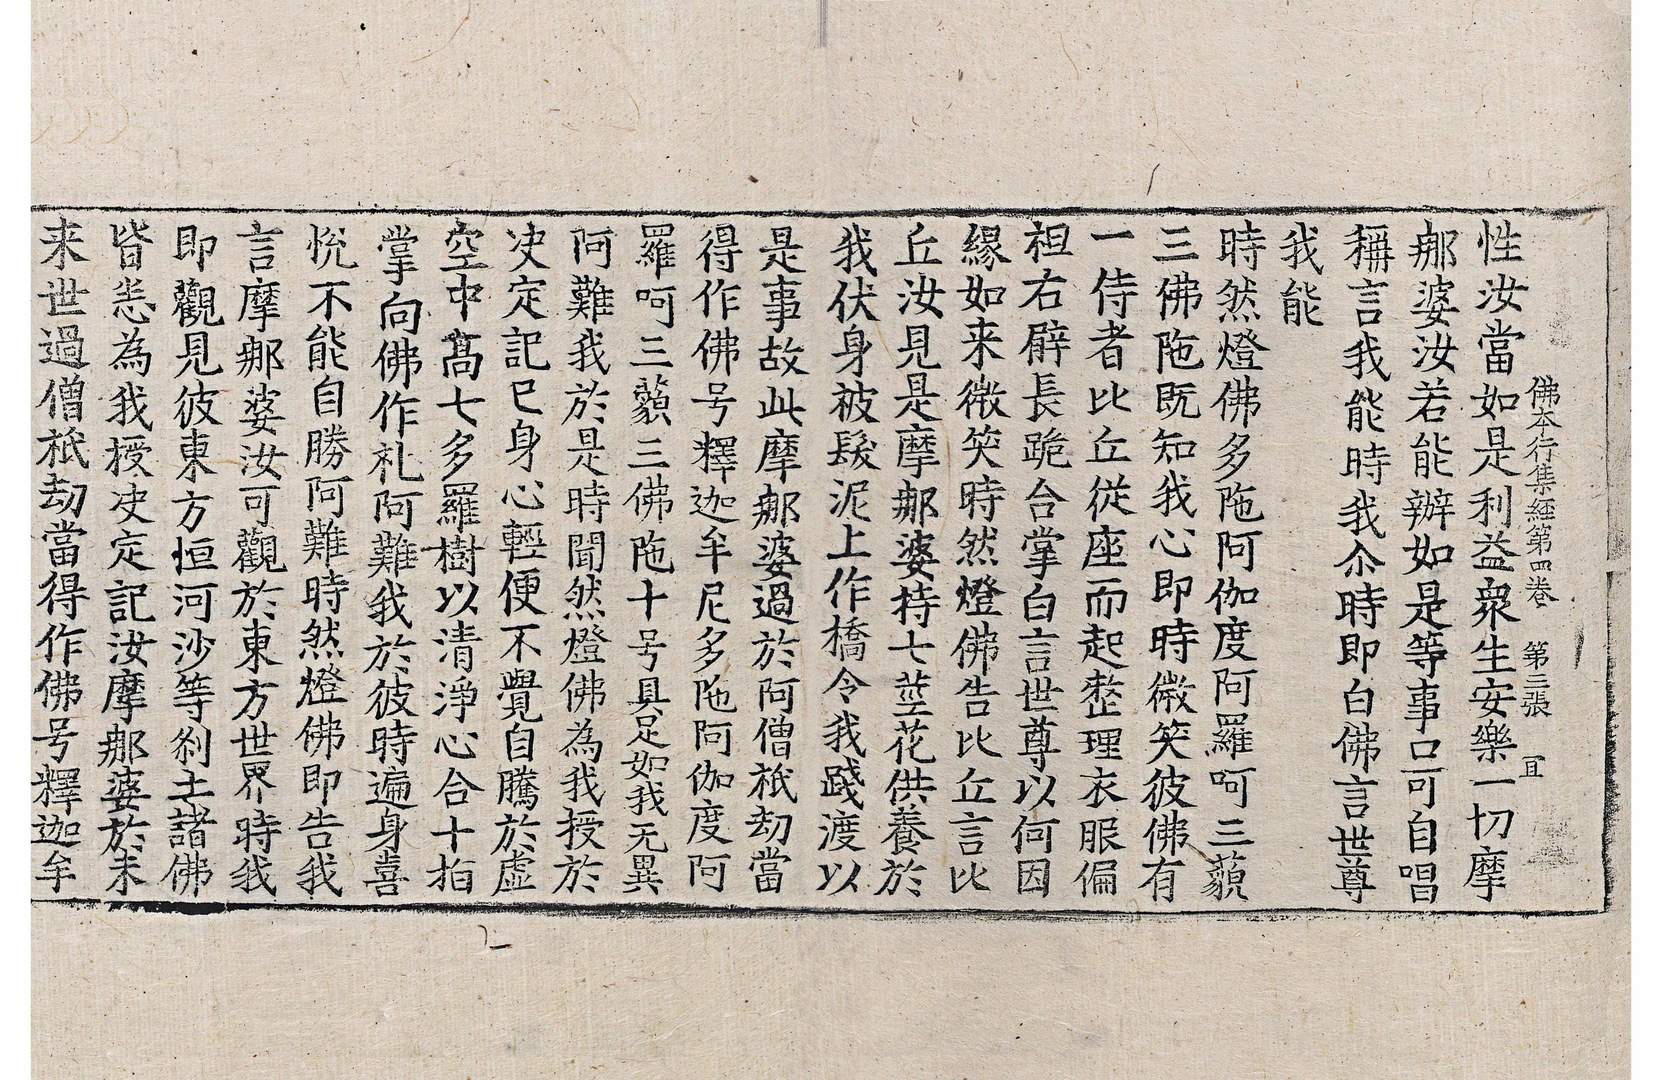 佛本行集經第四卷　第三張　宜
性汝當如是利益衆生安樂一切摩
郍婆汝若能辦如是等事口可自唱
稱言我能時我尒時即白佛言世尊
我能
時然燈佛多陁阿伽度阿羅呵三藐
三佛陁既知我心即時微笑彼佛有
一侍者比丘從座而起整理衣服偏
袒右臂長跪合掌白言世尊以何因
緣如来微笑時然燈佛告比丘言比
丘汝見是摩郍婆持七莖花供養於
我伏身被髮泥上作橋令我踐渡以
是事故此摩郍婆過於阿僧祇劫當
得作佛号釋迦牟尼多陁阿伽度阿
羅呵三藐三佛陁十号具足如我无異
阿難我於是時聞然燈佛為我授於
决定記已身心輕便不覺自騰於虛
空中髙七多羅樹以清淨心合十拍
掌向佛作礼阿難我於彼時遍身喜
悅不能自勝阿難時然燈佛即告我
言摩郍婆汝可觀於東方世界時我
即觀見彼東方恒河沙等刹土諸佛
皆悉為我授决定記汝摩郍婆於未
来世過僧祇劫當得作佛号釋迦牟